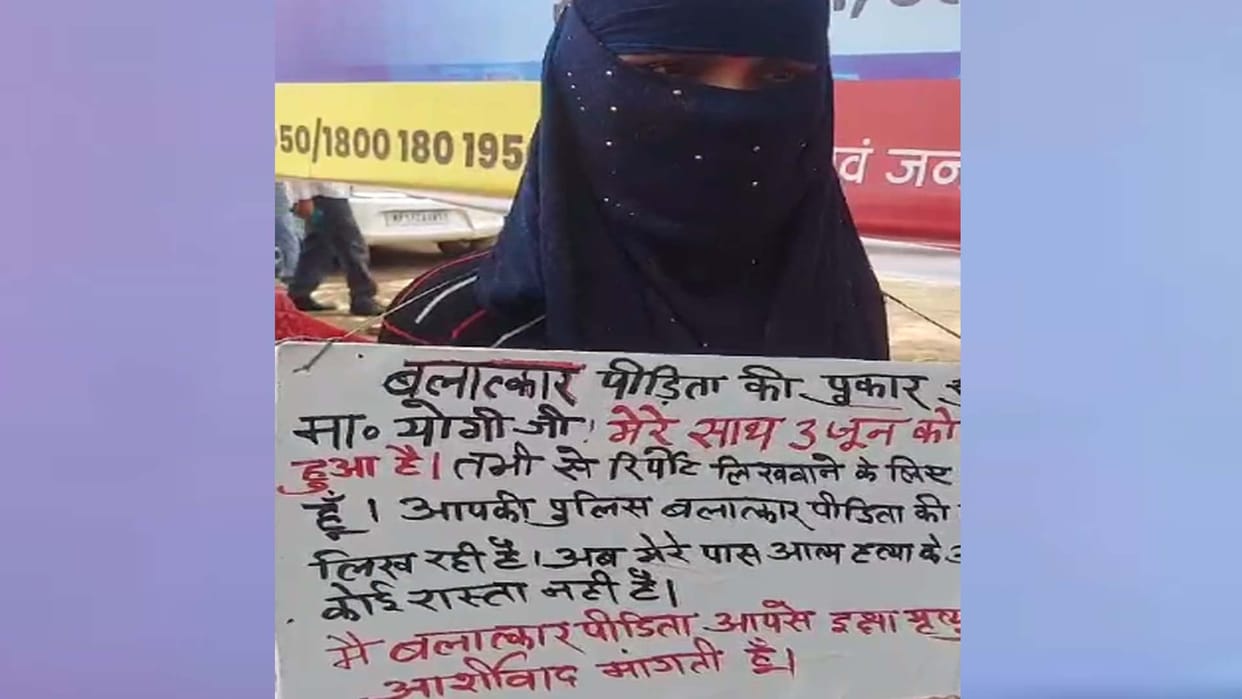 50/1800 180 195
वं जन
बलात्कार पीड़िता की पुकार
मा० योगी जी! मेरे साथ 3 जून को
हुआ है। तभी से रिर्पोट लिखवाने के लिए
हूँ। आपकी पुलिस बलात्कार पीडिता की
लिख रही है। अब मेरे पास आत्म हत्या के
कोई रास्ता नही है।
मै बलात्कार पीडिता आपसे इक्षा मृत्यु
आर्शीवाद मांगती हूँ।